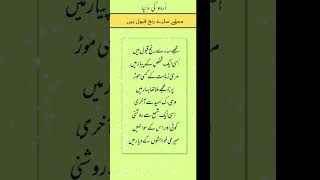 اُردو کی دُنیا
مجھے سارے رنج قبول ہیں
مجھے سارے رنج قبول ہیں
اُسی ایک شخص کے پیار میں
مری زیست کے کسی موڑ
پر جو مجھے ملا تھا بہار میں
وہی اک امید ہے آخری
اسی ایک شمع سے روشنی
کوئی اور اس کے سوا نہیں
میری خواہشوں کے دیار میں